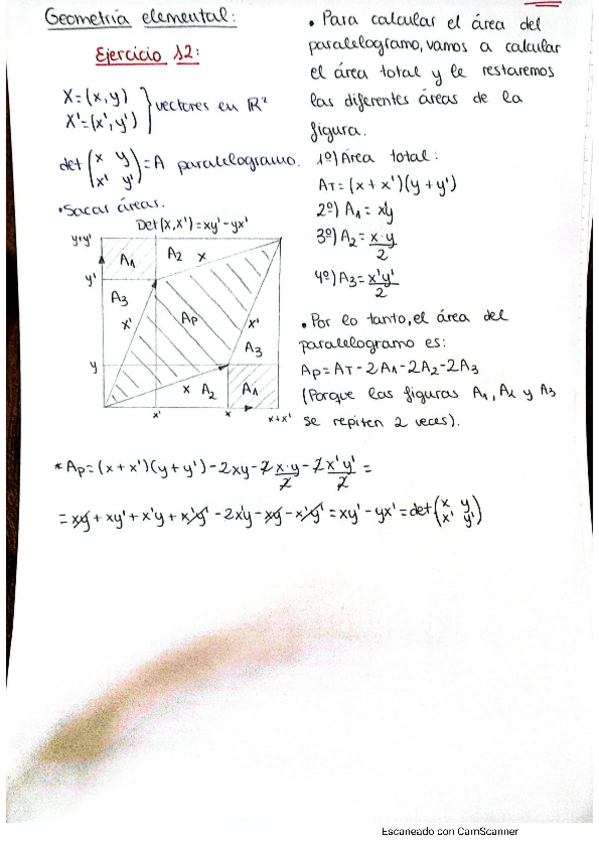 Geometría elemental:
Ejercicio 12:
X=(x,y)
X'=(x',y') } vectores en R²
det (x y
x' y') = A paralelogramo.
• Sacar áreas.
Det(X,X')=xy'-yx'
y+y'
A1
A2
x
y'
A3
x'
Ap
x'
A3
y
x
A2
A1
x'
x
x+x'
• Para calcular el área del
paralelogramo, vamos a calcular
el área total y le restaremos
las diferentes áreas de la
figura.
1º) Área total:
AT=(x+x')(y+y')
2º) A1=x'y
3º) A2=x·y/2
4º) A3=x'y'/2
• Por lo tanto, el área del
paralelogramo es:
Ap=AT-2A1-2A2-2A3
(Porque las figuras A1, A2 y A3
se repiten 2 veces).
*Ap=(x+x')(y+y')-2xy-2x·y/2-2x'y'/2=
=xy+xy'+x'y+x'y'-2x'y-xy-x'y'=xy'-yx'=det(x y
x' y')
Escaneado con CamScanner